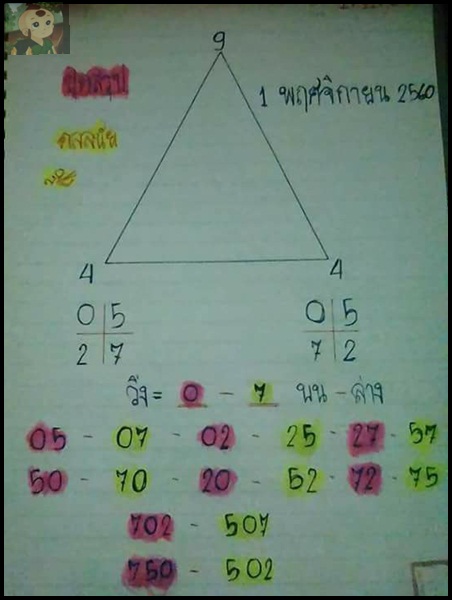 9
สูตรสรุป
1 พฤศจิกายน 2560
4 4
0 5 0 5
2 7 7 2
วิ่ง = 0 - 7 บน - ล่าง
05 - 07 - 02 - 25 - 27 - 57
50 - 70 - 20 - 52 - 72 - 75
702 - 507
750 - 502